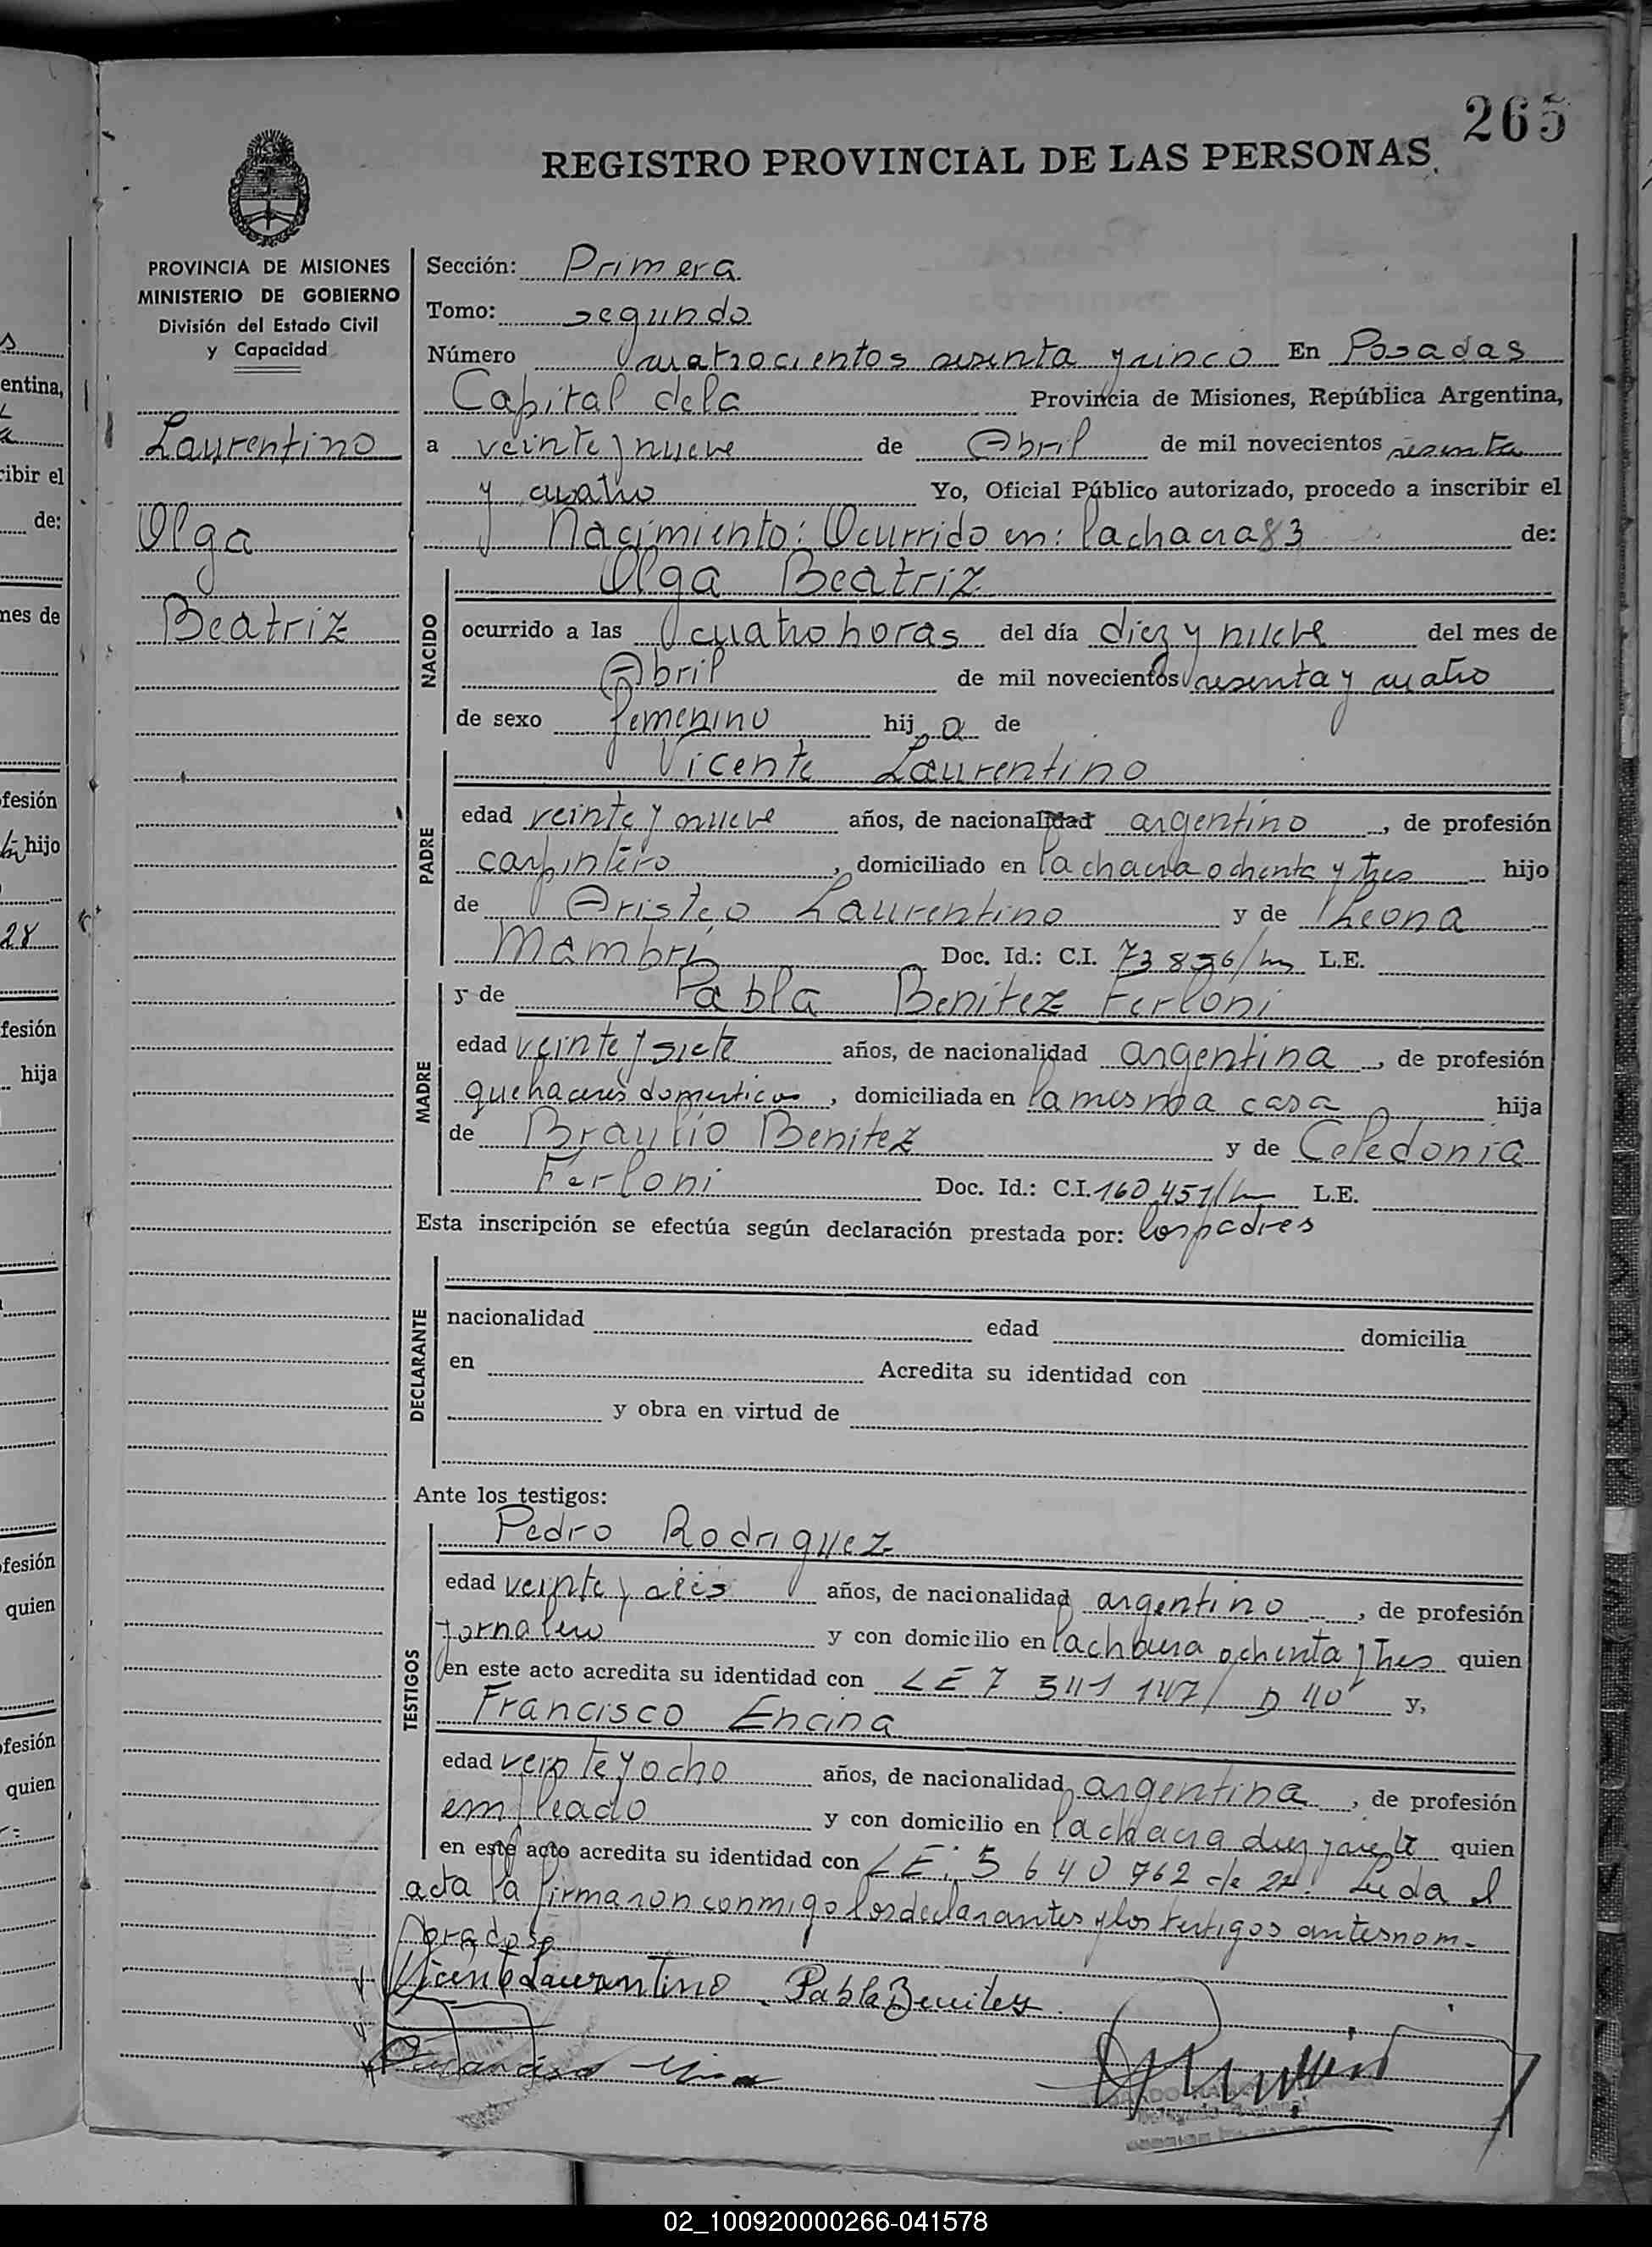 265
REGISTRO PROVINCIAL DE LAS PERSONAS
PROVINCIA DE MISIONES
MINISTERIO DE GOBIERNO
División del Estado Civil
y Capacidad
Laurentino
Olga
Beatriz
Sección: Primera
Tomo: segundo
Número cuatrocientos sesenta y cinco En Posadas
Capital de la Provincia de Misiones, República Argentina,
a veinte y nueve de Abril de mil novecientos sesenta
y cuatro Yo, Oficial Público autorizado, procedo a inscribir el
Nacimiento: Ocurrido en: la chacra 83 de:
NACIDO
Olga Beatriz
ocurrido a las cuatro horas del día diez y nueve del mes de
Abril de mil novecientos sesenta y cuatro
de sexo femenino hij a de
PADRE
Vicente Laurentino
edad veinte y nueve años, de nacionalidad argentino, de profesión
carpintero, domiciliado en la chacra ochenta y tres hijo
de Aristeo Laurentino y de Leona
Mambri Doc. Id.: C.I. L.E.
MADRE
y de Pabla Benitez Ferloni
edad veinte y siete años, de nacionalidad argentina, de profesión
quehaceres domesticos, domiciliada en la misma casa hija
de Braulio Benitez y de Celedonia
Ferloni Doc. Id.: C.I. 160.451 L.E.
Esta inscripción se efectúa según declaración prestada por: los padres
DECLARANTE
nacionalidad edad domicilia
en Acredita su identidad con
y obra en virtud de
Ante los testigos:
TESTIGOS
Pedro Rodriguez
edad veinte y seis años, de nacionalidad argentino, de profesión
jornalero y con domicilio en la chacra ochenta y tres quien
en este acto acredita su identidad con LE 7 D 40 y,
Francisco Encina
edad veinte y ocho años, de nacionalidad argentina, de profesión
empleado y con domicilio en la chacra diez y siete quien
en este acto acredita su identidad con LE: 5 640 762 Leida el
acta la firmaron conmigo los declarantes y los testigos antes nom-
brados
Vicente Laurentino Pabla Benitez
02_100920000266-041578